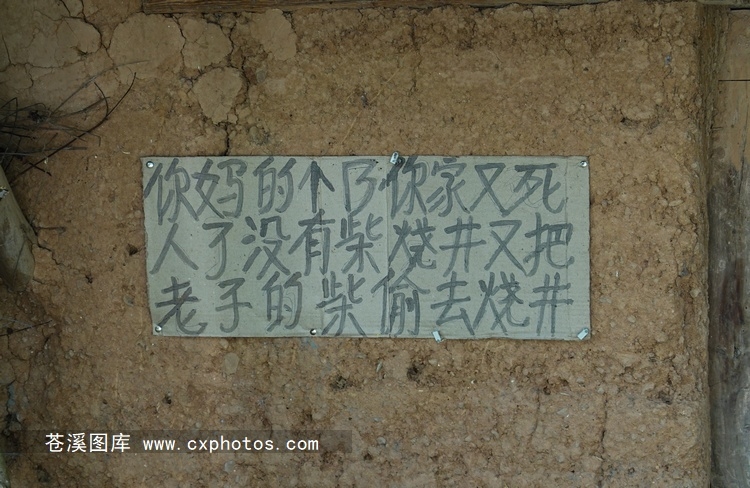 你妈的个B你家又死
人了没有柴烧井又把
老子的柴偷去烧井
苍溪图库 www.cxphotos.com